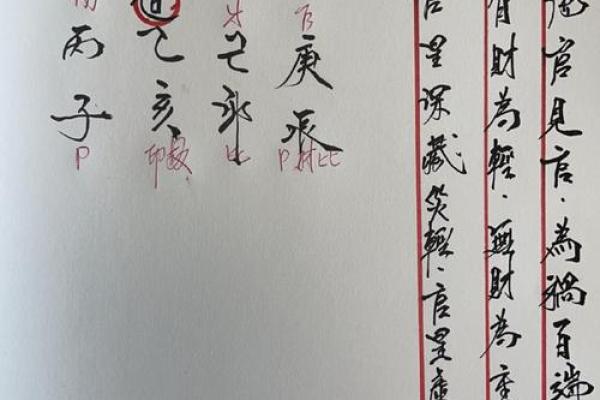 傷官見官。為禍百端
有財為輕。無財為重
官星深藏災輕。官星
官
庚
辰
P财比
才
己
卯
比
乙
亥
印劫
傷
丙
子
P